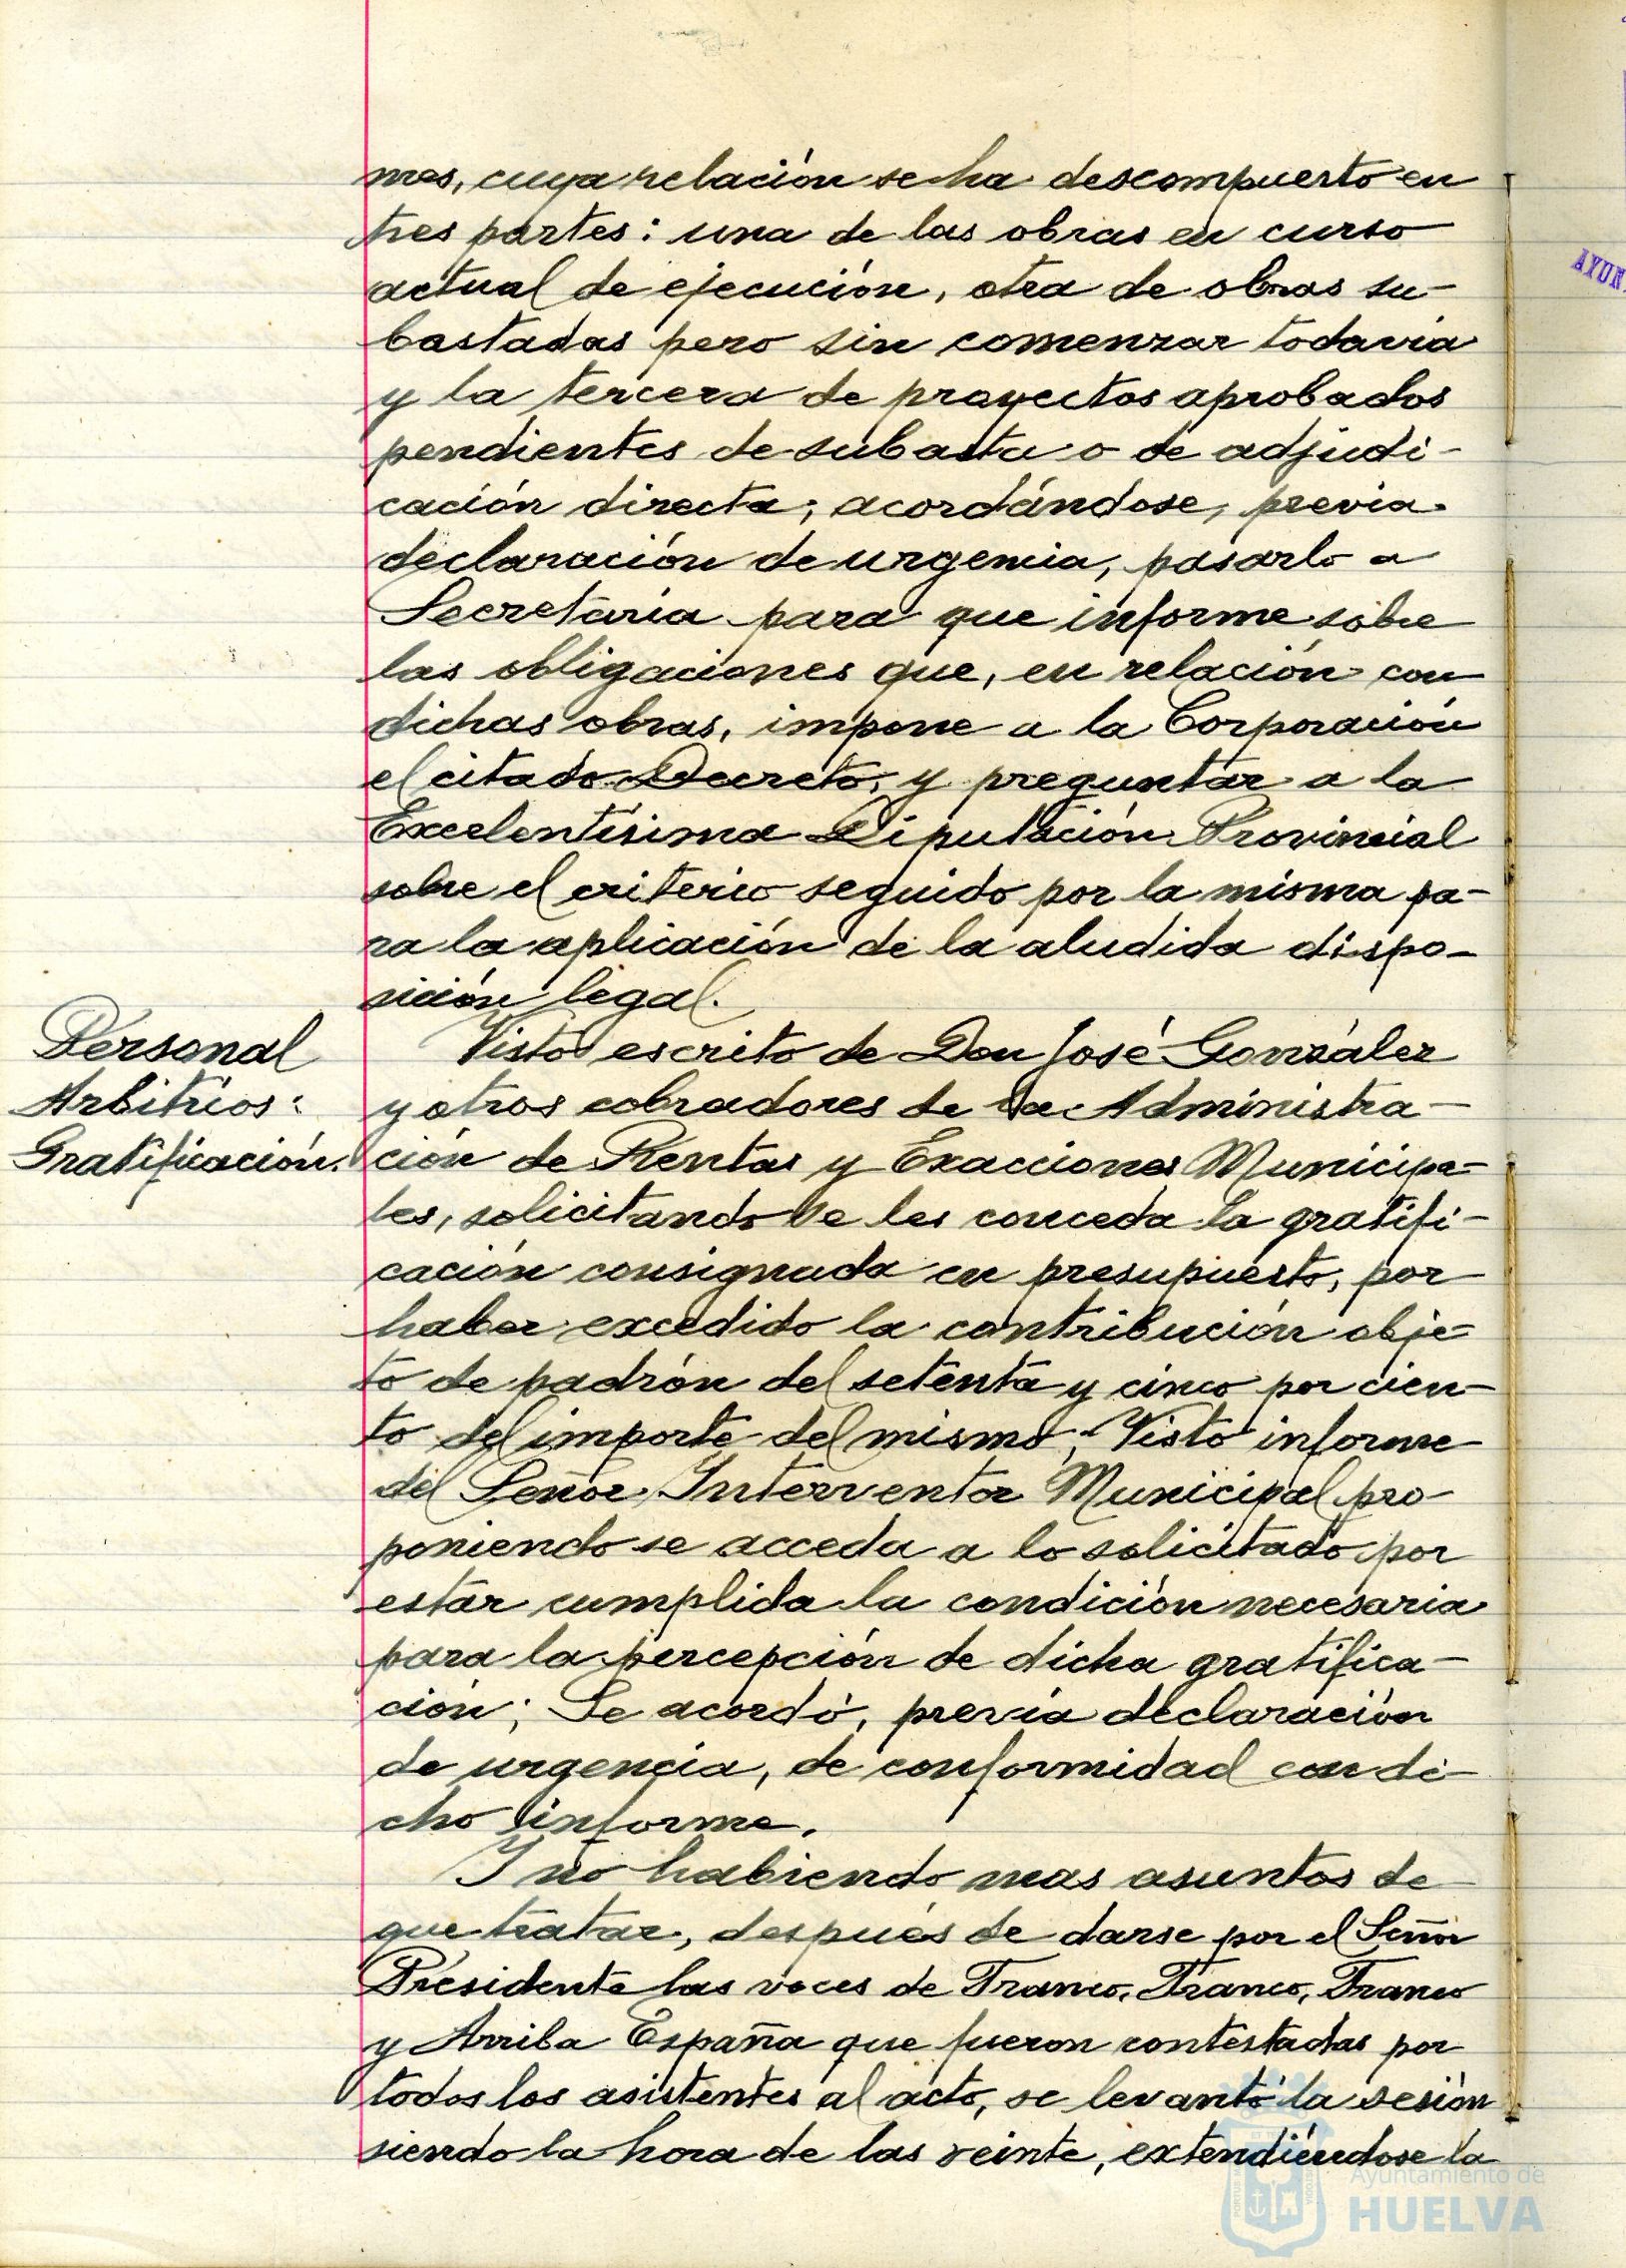 mas, cuya relación se ha descompuesto en
tres partes: una de las obras en curso
actual de ejecución, otra de obras su-
bastadas pero sin comenzar todavía
y la tercera de proyectos aprobados
pendientes de subasta o de adjudi-
cación directa; acordándose, previa
declaración de urgencia, pasarlo a
Secretaría para que informe sobre
las obligaciones que, en relación con
dichas obras, impone a la Corporación
el citado Decreto, y preguntar a la
Excelentísima Diputación Provincial
sobre el criterio seguido por la misma pa-
ra la aplicación de la aludida dispo-
sición legal.
Personal
Arbitrios:
Gratificación.
Visto escrito de Don José González
y otros cobradores de la Administra-
ción de Rentas y Exacciones Municipa-
les, solicitando se les conceda la gratifi-
cación consignada en presupuesto, por
haber excedido la contribución obje-
to de padrón del setenta y cinco por cien-
to del importe del mismo; Visto informe
del Señor Interventor Municipal pro-
poniendo se acceda a lo solicitado por
estar cumplida la condición necesaria
para la percepción de dicha gratifica-
ción; Se acordó, previa declaración
de urgencia, de conformidad con di-
cho informe.
Y no habiendo mas asuntos de
que tratar, después de darse por el Señor
Presidente las voces de Franco, Franco, Franco
y Arriba España que fueron contestadas por
todos los asistentes al acto, se levantó la sesión
siendo la hora de las veinte, extendiéndose la
AYUN
Ayuntamiento de
HUELVA